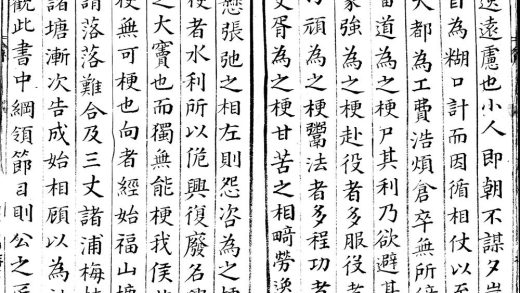 遠慮也小人即朝不謀夕
自為糊口計而因循相仗以至
大都為工費浩煩倉卒無所
當道為之梗尸其利乃欲避其
家強為之梗赴役者多服役者
頑為之梗鬻法者多程功者
胥為之梗甘苦之相畸勞逸
懸張弛之相左則怨咨為之梗
使者水利所以俛興復廢名
之大竇也而獨無能梗我侯
梗無可梗也向者經始福山塘
謂落落難合及三丈諸浦梅
諸塘漸次告成始相顧以為
觀此書中綱領節目則公之